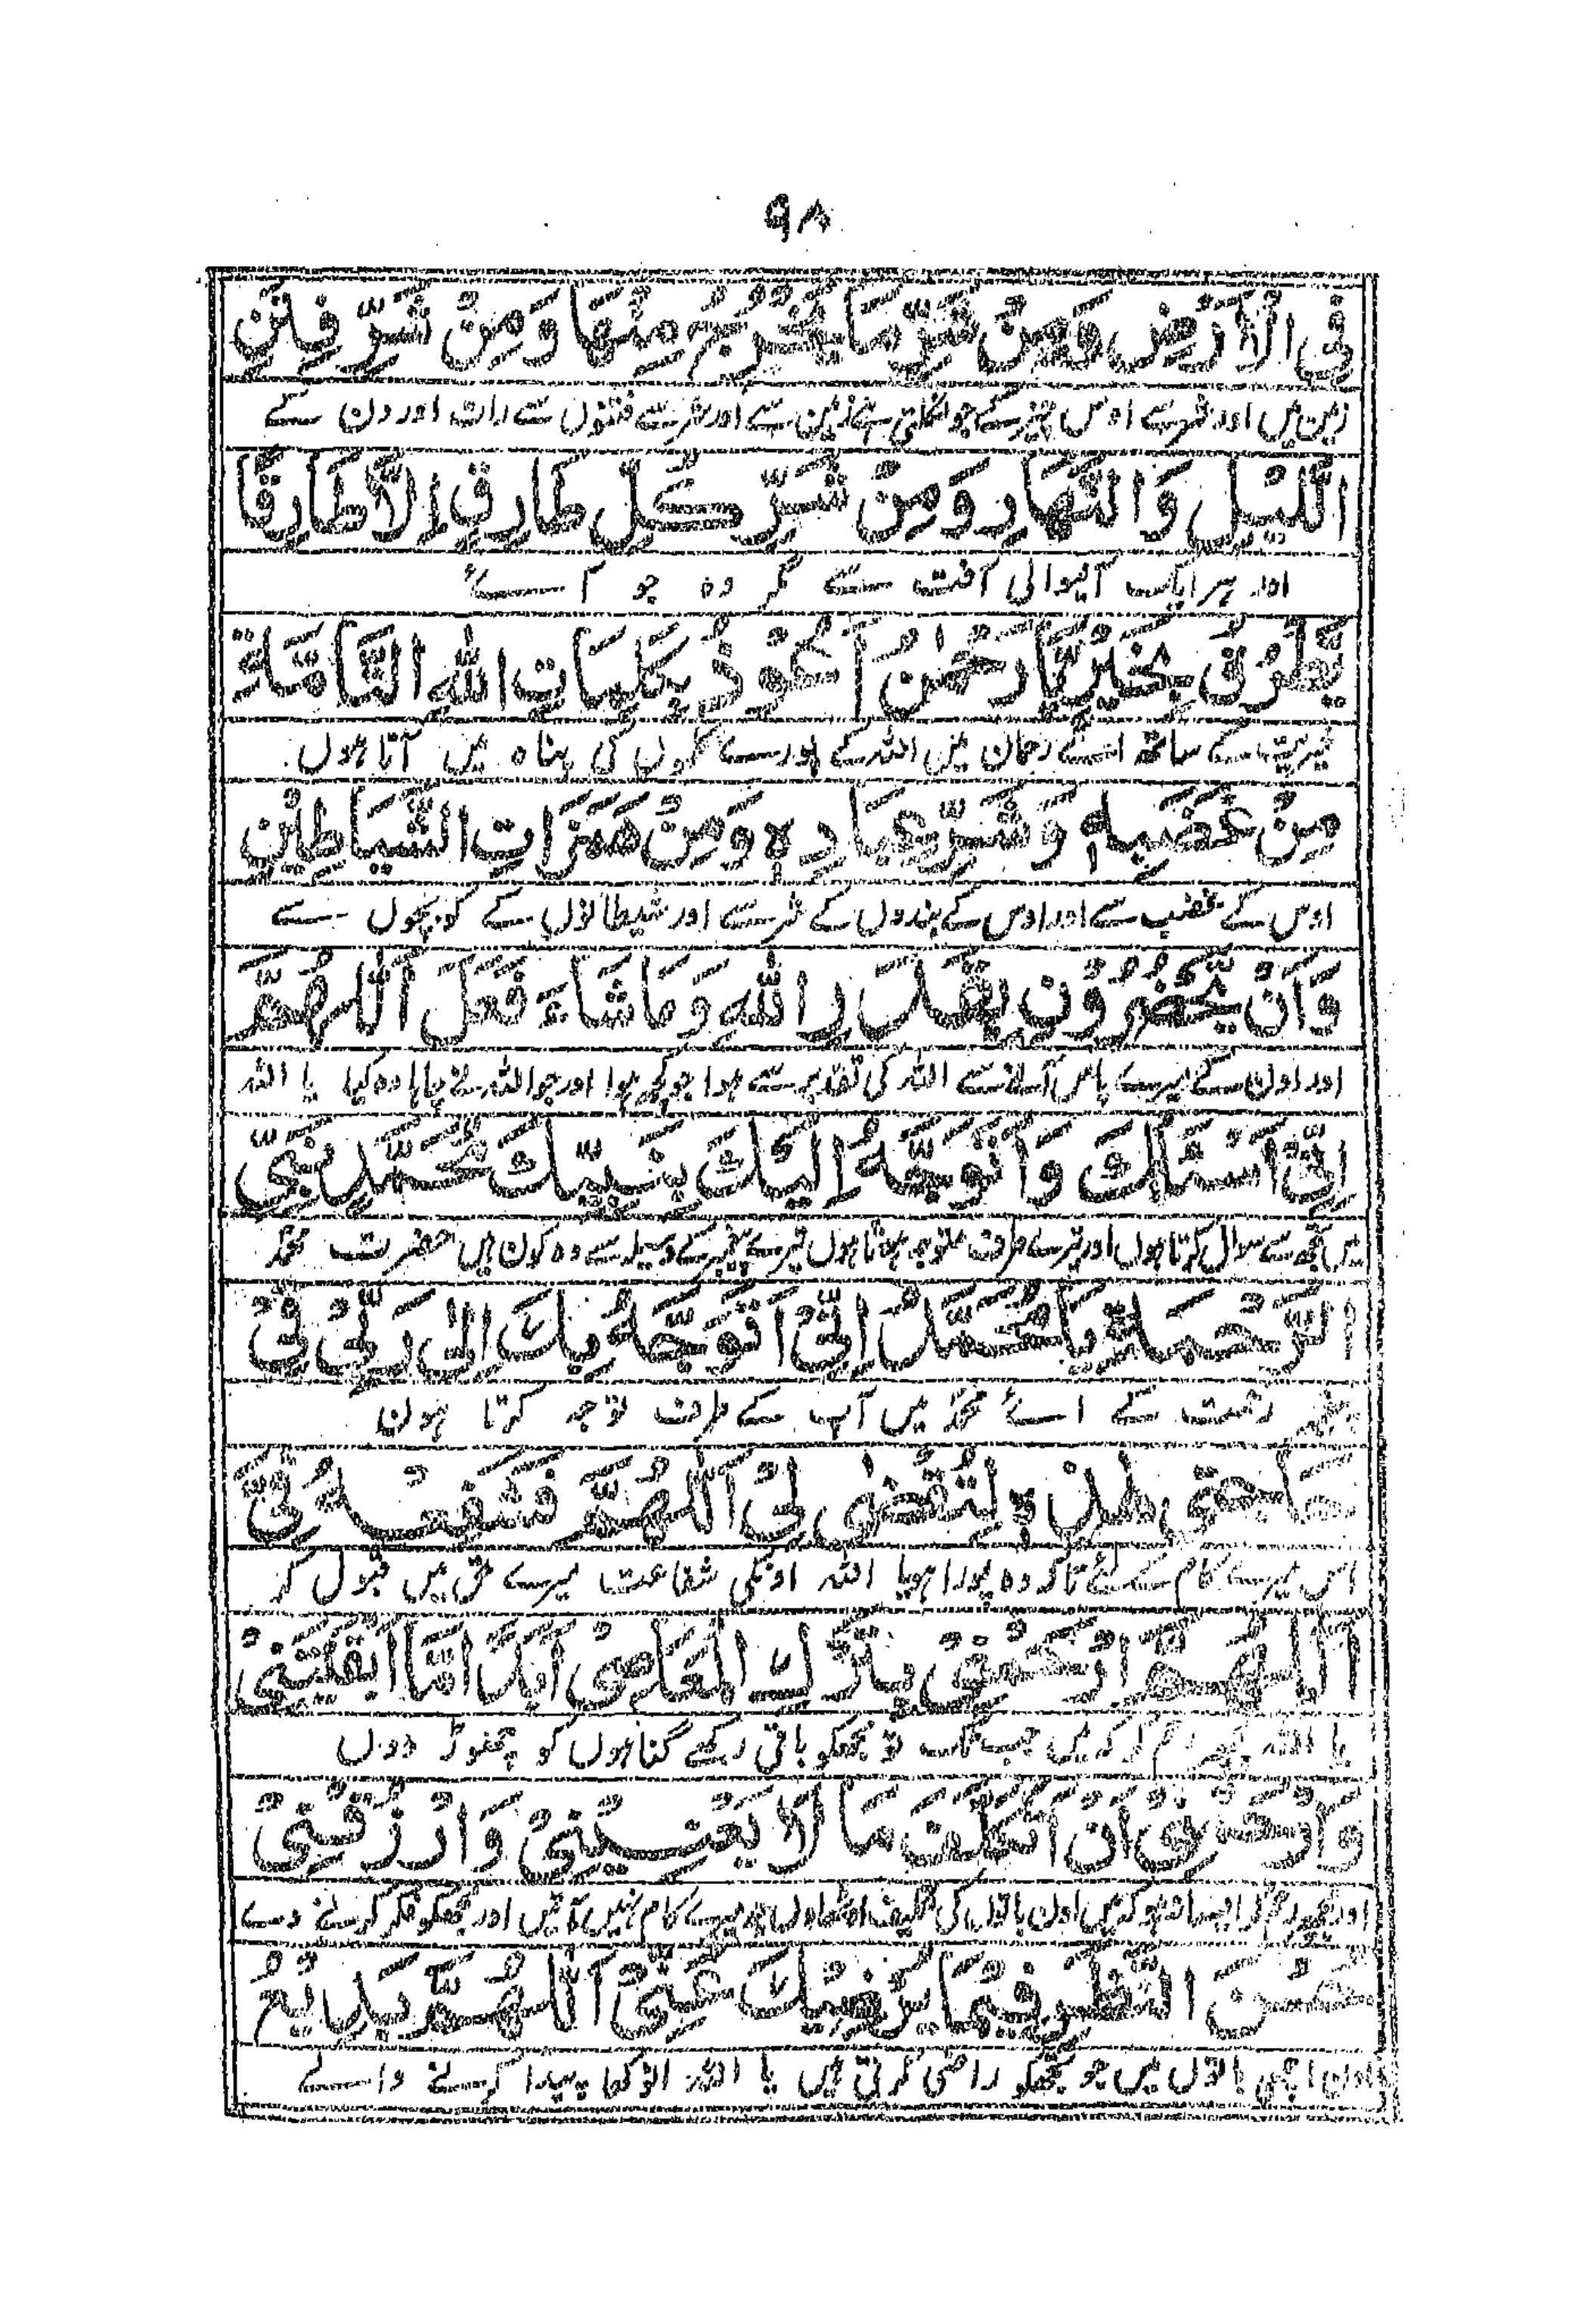 ۹۸
فِی الْاَرْضِ وَمِنْ شَرِّ مَا یَخْرُجُ مِنْهَا وَمِنْ شَرِّ فِتَنِ
زمین میں اور شر سے اوس چیز کے جو نکلتی ہے زمین سے اور شر سے فتنوں سے رات اور دن کے
اللَّیْلِ وَالنَّهَارِ وَمِنْ شَرِّ کُلِّ طَارِقٍ اِلَّا طَارِقًا
اور ہر ایک آنیوالی آفت سے مگر وہ جو آئے
یَطْرُقُ بِخَیْرٍ یَا رَحْمٰنُ اَعُوْذُ بِکَلِمَاتِ اللهِ التَّامَّةِ
خیریت کے ساتھ اے رحمان میں اللہ کے پورے کلموں کی پناہ میں آتا ہوں
مِنْ غَضَبِهٖ وَشَرِّ عِبَادِهٖ وَمِنْ هَمَزَاتِ الشَّیَاطِیْنِ
اوس کے غضب سے اور اوس کے بندوں کے شر سے اور شیطانوں کے کونچوں سے
وَاَنْ یَّحْضُرُوْنِ بِقَدَرِ اللهِ وَمَا شَاءَ فَعَلَ اَللّٰهُمَّ
اور اون کے میرے پاس آنے سے اللہ کی تقدیر سے ہوا جو کچھ ہوا اور جو اللہ نے چاہا وہ کیا یا اللہ
اِنِّیْ اَسْئَلُکَ وَاَتَوَجَّهُ اِلَیْکَ بِنَبِیِّکَ مُحَمَّدٍ نَبِیِّ
میں تجھ سے سوال کرتا ہوں اور تیرے طرف متوجہ ہوتا ہوں تیرے پیغمبر کے وسیلہ سے وہ کون ہیں حضرت محمدؐ
الرَّحْمَةِ یَا مُحَمَّدُ اِنِّیْ اَتَوَجَّهُ بِکَ اِلٰی رَبِّیْ فِیْ
رحمت کے اے محمدؐ میں آپ کے طرف توجہ کرتا ہوں
حَاجَتِی هٰذِهٖ لِتُقْضٰی لِیْ اَللّٰهُمَّ فَشَفِّعْهُ فِیَّ
اس میرے کام کے لئے تاکہ وہ پورا ہو یا اللہ اونکی شفاعت میرے حق میں قبول کر
اَللّٰهُمَّ ارْحَمْنِیْ بِتَرْکِ الْمَعَاصِیْ اَبَدًا مَّا اَبْقَیْتَنِیْ
یا اللہ رحم کر کہ میں جب تک تو مجھکو باقی رکھے گناہوں کو چھوڑ دوں
وَارْحَمْنِیْ اَنْ اَتَکَلَّفَ مَا لَا یَعْنِیْنِیْ وَارْزُقْنِیْ
ایسا نہ ہو کہ میں اون باتوں کی تکلیف اوٹھاوں جو میرے کام نہیں آتیں اور مجھکو فکر کرنے دے
حُسْنَ النَّظَرِ فِیْمَا یُرْضِیْکَ عَنِّیْ اَللّٰهُمَّ بَدِیْعَ
اون اچھی باتوں میں جو تجھکو راضی کرتی ہیں یا اللہ انوکھا پیدا کرنے والے